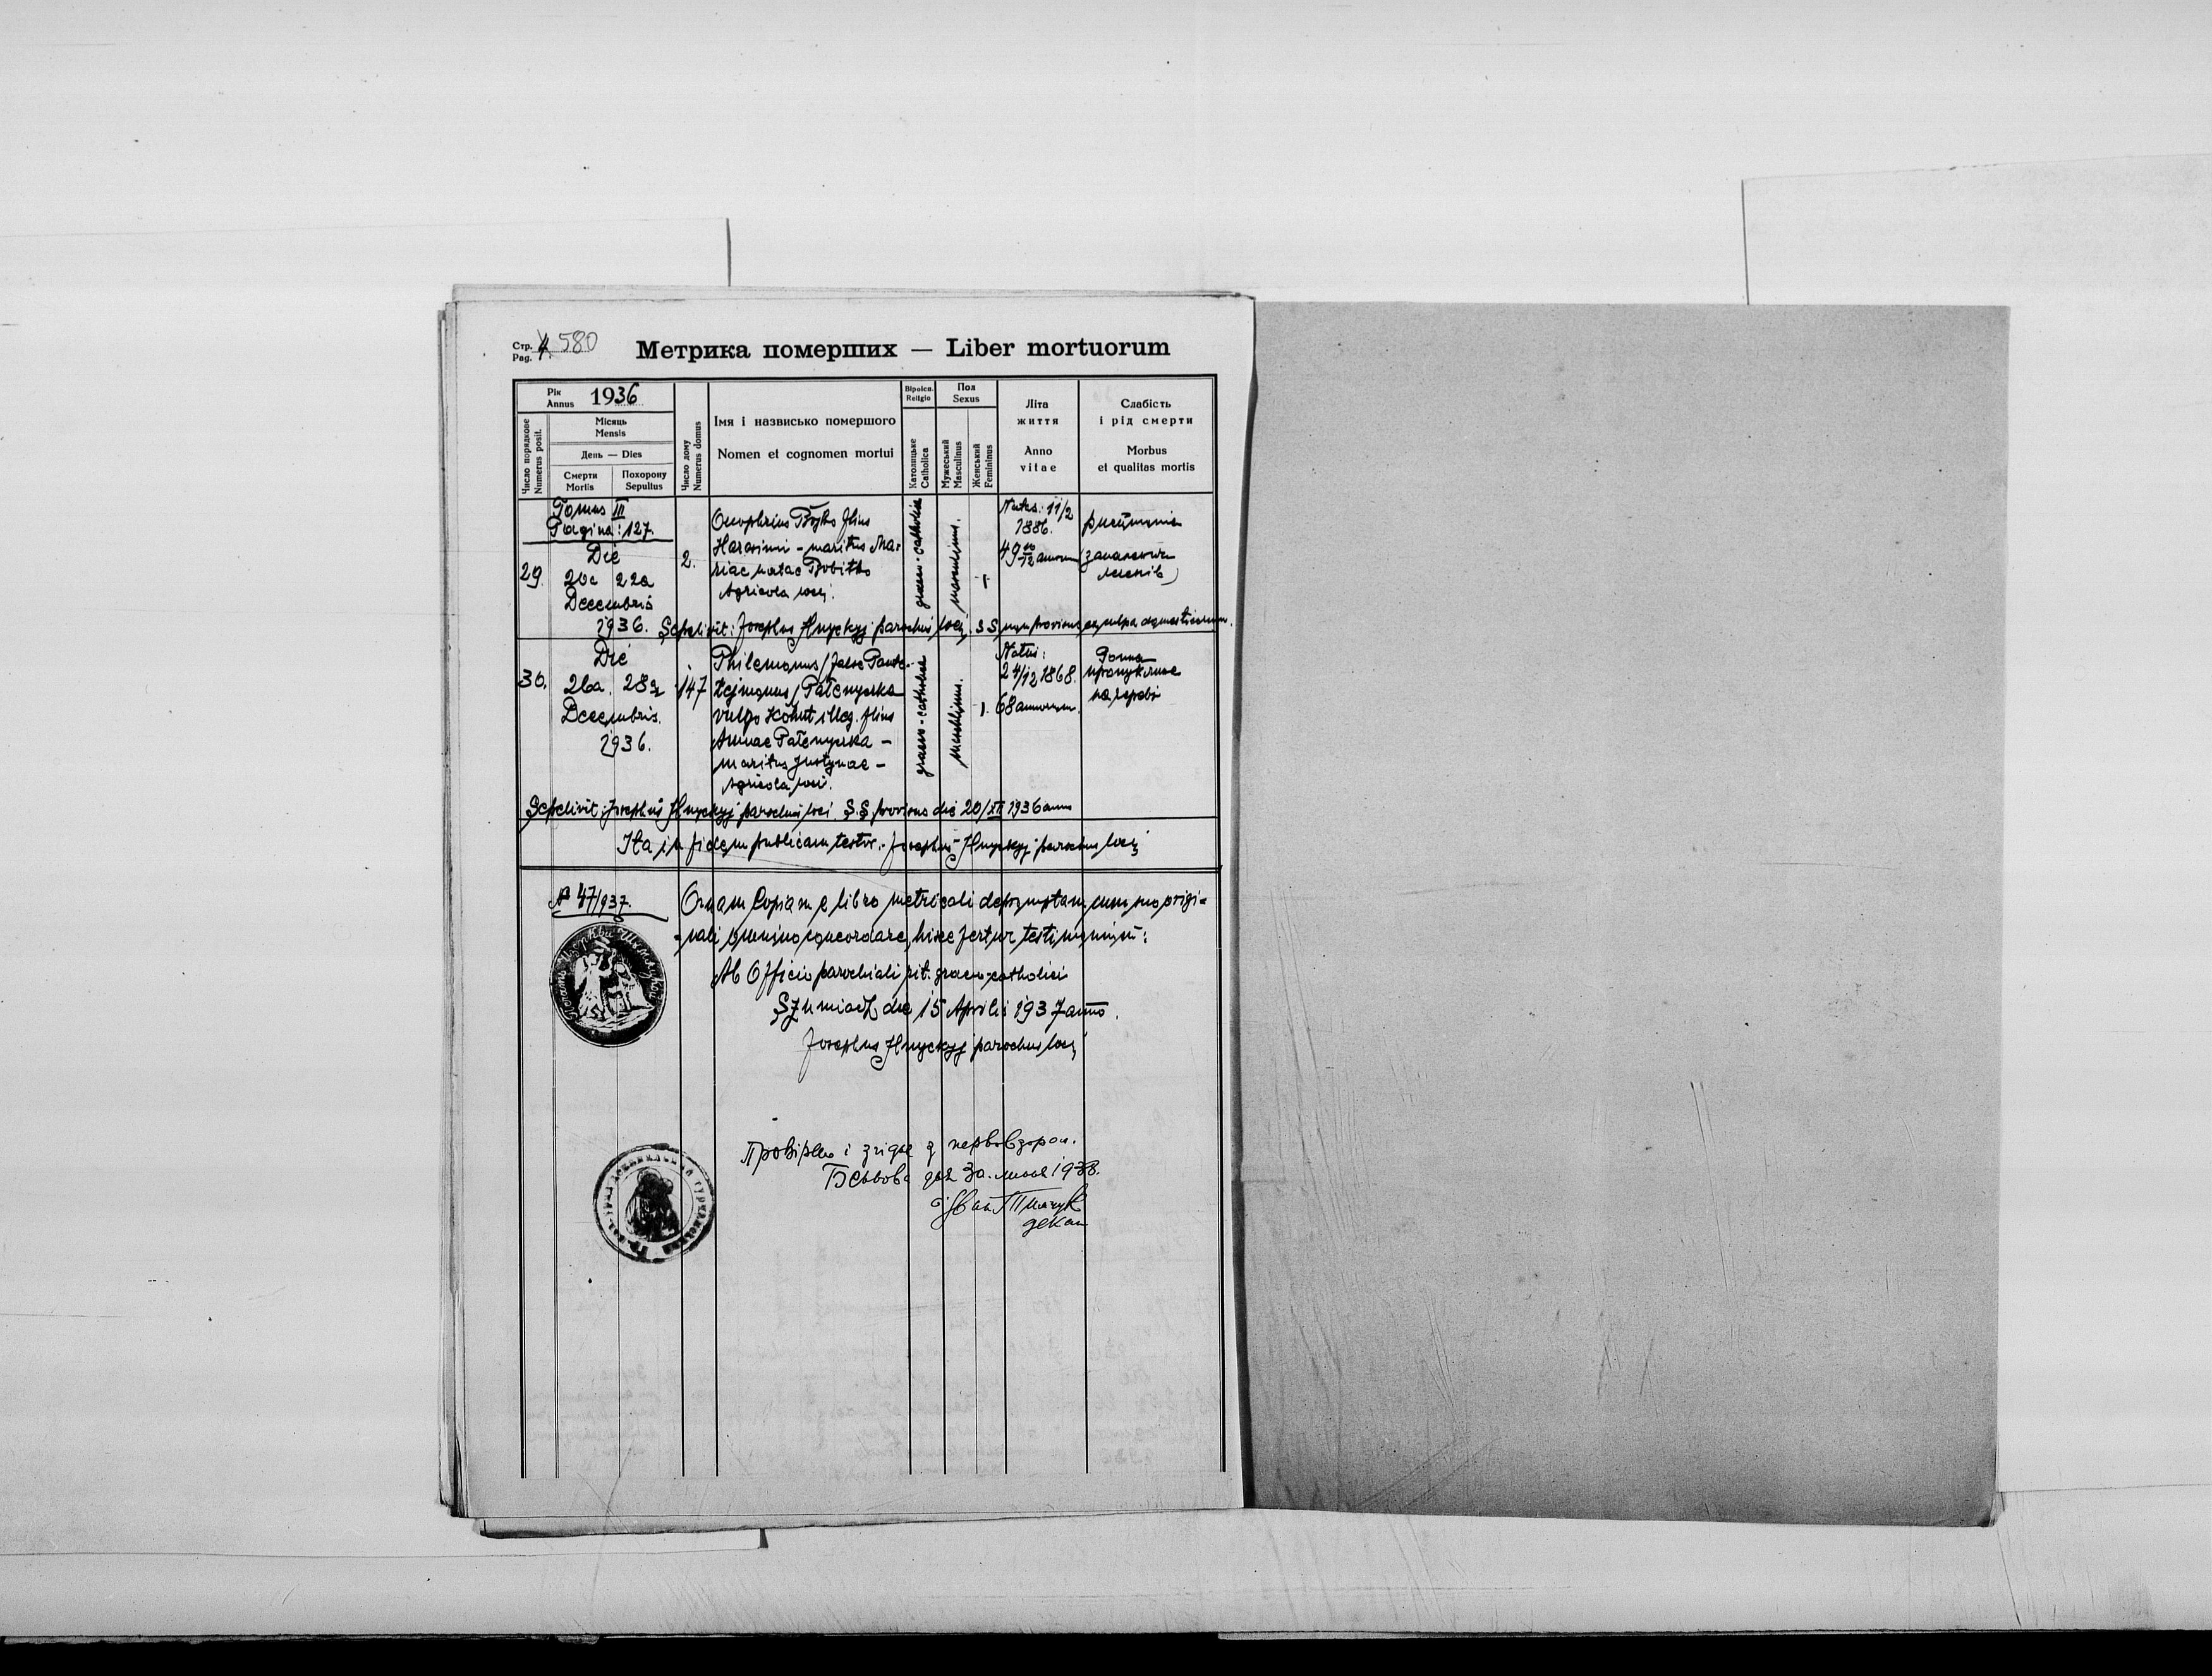 Стр. Pag. 4. 580
Метрика померших — Liber mortuorum
Рік Annus 1936
Місяць Mensis
День — Dies
Смерти Mortis
Похорону Sepultus
Число порядкове Numerus posit.
Число дому Numerus domus
Імя і назвисько помершого
Nomen et cognomen mortui
Віроісп. Religio
Католицьке Catholica
Пол Sexus
Мужеський Masculinus
Женський Femininus
Літа життя
Anno vitae
Слабість і рід смерти
Morbus et qualitas mortis
Tomus III
Pagina: 127.
29.
Die
20a 22a
Decembris
1936.
2.
Onophrius Bojko filius
Harasimi - maritus Ma-
riae natae
Agricola loci.
graeco-catholica
masculinus.
1
Natus: 11/2
1886.
49 10/12 annorum
pneumonia
(запалення
легенів)
Sepelivit: Josephus Hnyckyj parochus loci. SS non provisus ex culpa domesticorum.
30.
Die
26a. 28a
Decembris.
1936.
147
Philemonus / false Pante-
lejmonus /
vulgo Kohut illeg. filius
Annae
maritus Justynae -
Agricola loci.
graeco-catholica
masculinus.
1.
Natus:
24/12 1868.
68 annorum.
Sepelivit: Josephus Hnyckyj parochus loci S.S provisus die 20/XII 1936 anno
Ita in fidem publicam testor. Josephus Hnyckyj parochus loci
№ 47/1937.
Copiam e libro metricali depromptam cum suo origi-
nali omnino concordare, hisce fertur testimonium:
Ab Officio parochiali rit. graeco-catholici
Szumiacz die 15 Aprilis 1937 anno.
Josephus Hnyckyj parochus loci
Провірено і згідне з первовзором.
дня 30. 1938.
Іван
декан